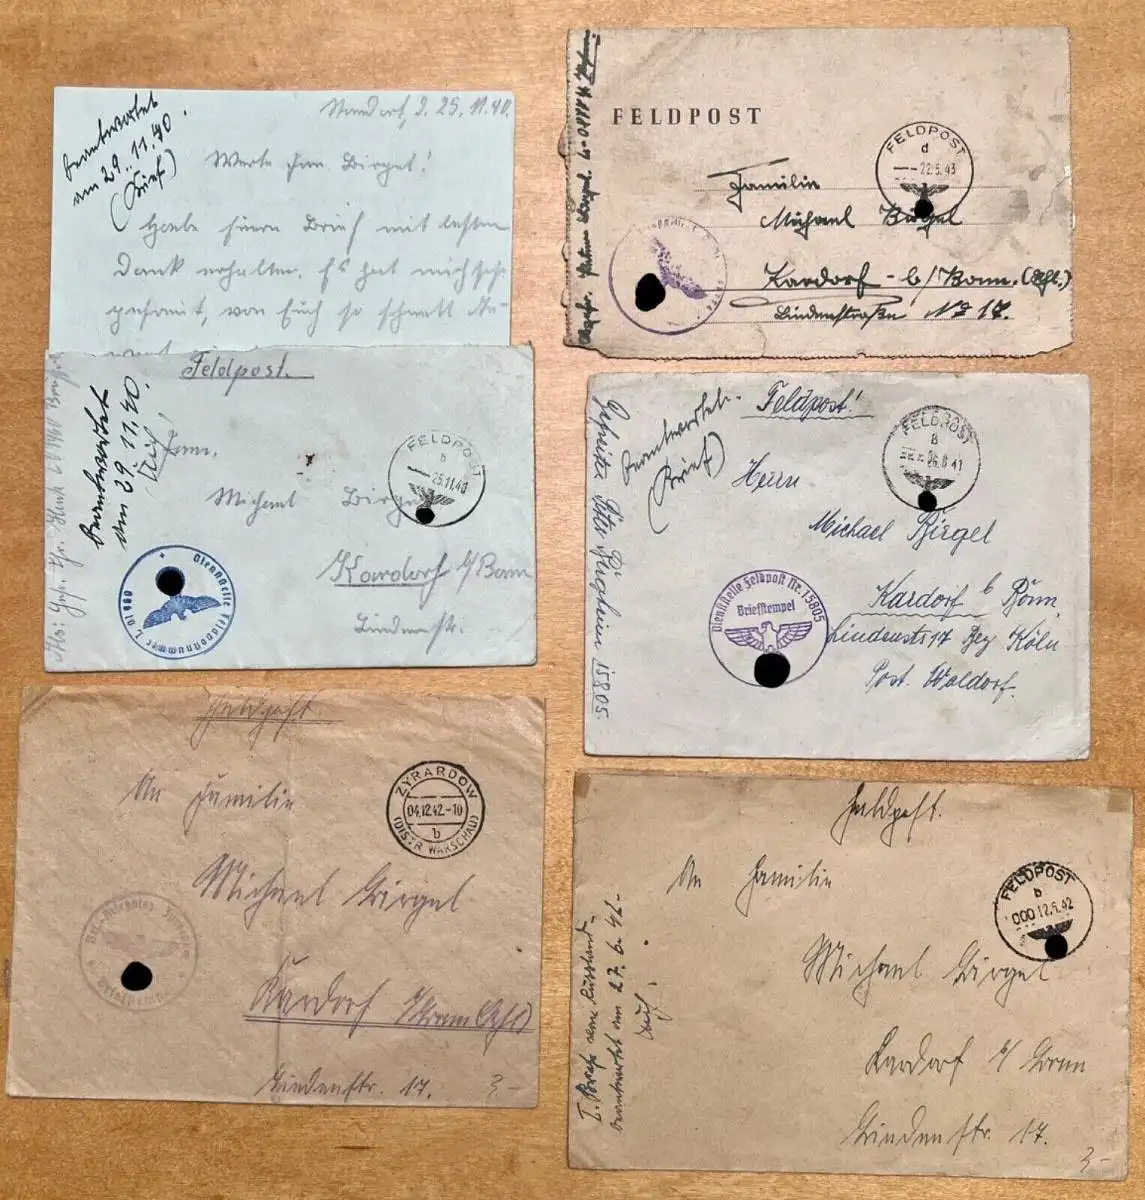 beantwortet
am 29.11.40.
(Brief)
Kardorf, d. 25.11.40.
Werte Fam. Birgel!
Habe Euren Brief mit besten
Dank erhalten. Es hat mich sehr
gefreut, von Euch so schnell An-
Feldpost.
beantwortet
am 29 11.40.
Fam.
Michael Birgel
Kardorf b/Bonn
Lindenstr.
FELDPOST
b
25.11.40
Dienststelle Feldpostnummer L 01960
FELDPOST
FELDPOST
d
22.5.43
Familie
Michael Birgel
Kardorf - b/Bonn.
Lindenstraße No 17.
Feldpost!
beantwortet.
(Brief)
FELDPOST
a
26.6.41
Herrn
Michael Birgel
Kardorf b Bonn
Lindenst 17 Bey Köln
Post. Waldorf.
Dienststelle Feldpost Nr. 15805
Briefstempel
15805.
Feldpost
ZYRARDOW
04.12.42.-10
b
(DISTR. WARSCHAU)
An Familie
Michael Birgel
Kardorf b/Bonn
Lindenstr. 17.
3-
Feldpost.
FELDPOST
b
000 12.6.42
An Familie
Michael Birgel
Kardorf b/Bonn
Lindenstr. 17.
I. Brief von Russland
beantwortet am 27.6.42.
3-